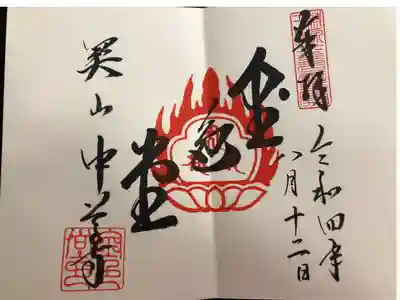 奉拝
令和四年
八月十二日
金色堂
関山
中尊寺